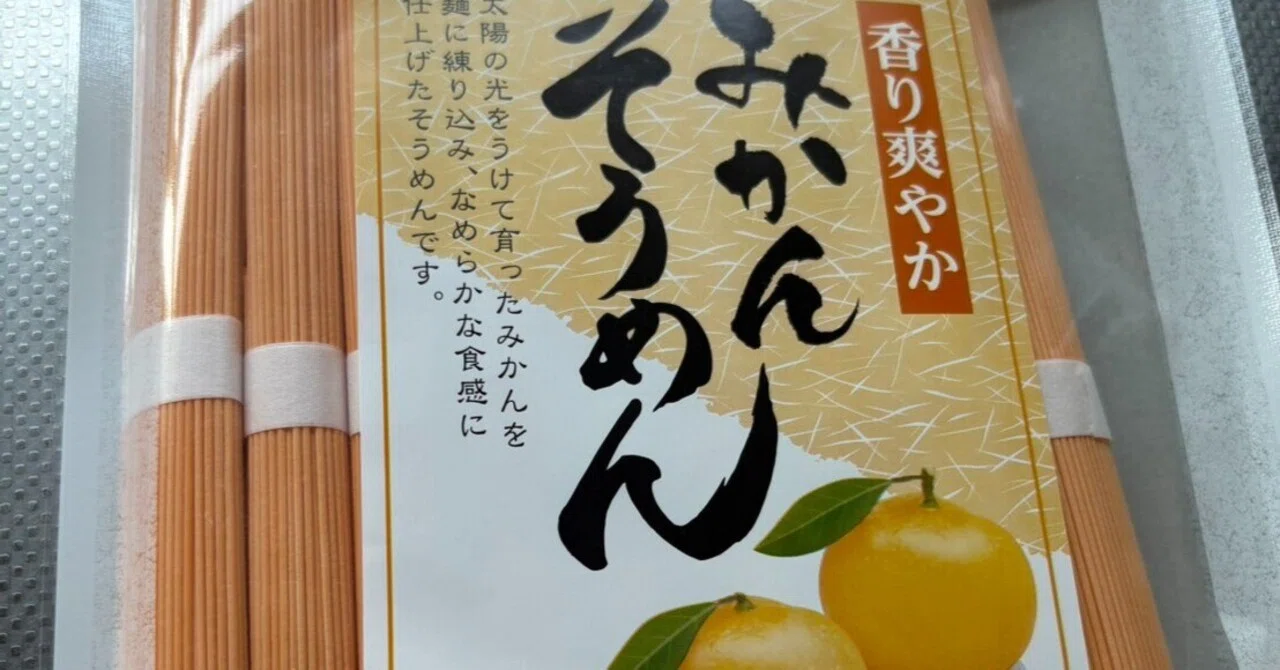 香り爽やか
みかん
そうめん
太陽の光をうけて育ったみかんを
麺に練り込み、なめらかな食感に
仕上げたそうめんです。